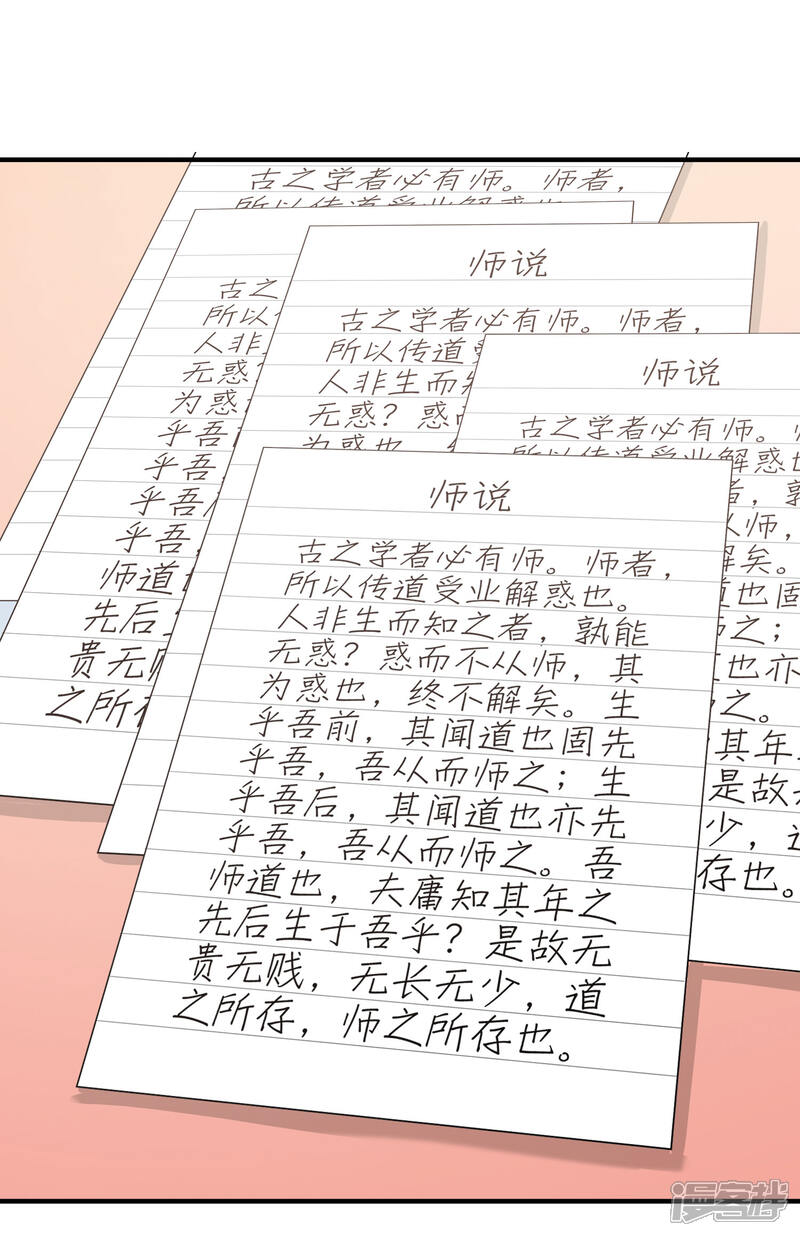 古之学者必有师。师者，
所以传道受业解惑也
古之
所以
人非
无惑
为惑
乎吾
乎吾
乎吾
乎吾，
师道也
先后生
贵无贱
之所存
师说
古之学者必有师。师者，
所以传道受
人非生而知
无惑？惑而
为惑也，终
师说
古之学者必有师。师
所以传道受业解惑也
者，孰
从师，
解矣。
道也固
师之；
道也亦
之。
其年
是故无
少，道
存也。
师说
古之学者必有师。师者，
所以传道受业解惑也。
人非生而知之者，孰能
无惑？惑而不从师，其
为惑也，终不解矣。生
乎吾前，其闻道也固先
乎吾，吾从而师之；生
乎吾后，其闻道也亦先
乎吾，吾从而师之。吾
师道也，夫庸知其年之
先后生于吾乎？是故无
贵无贱，无长无少，道
之所存，师之所存也。
漫客栈